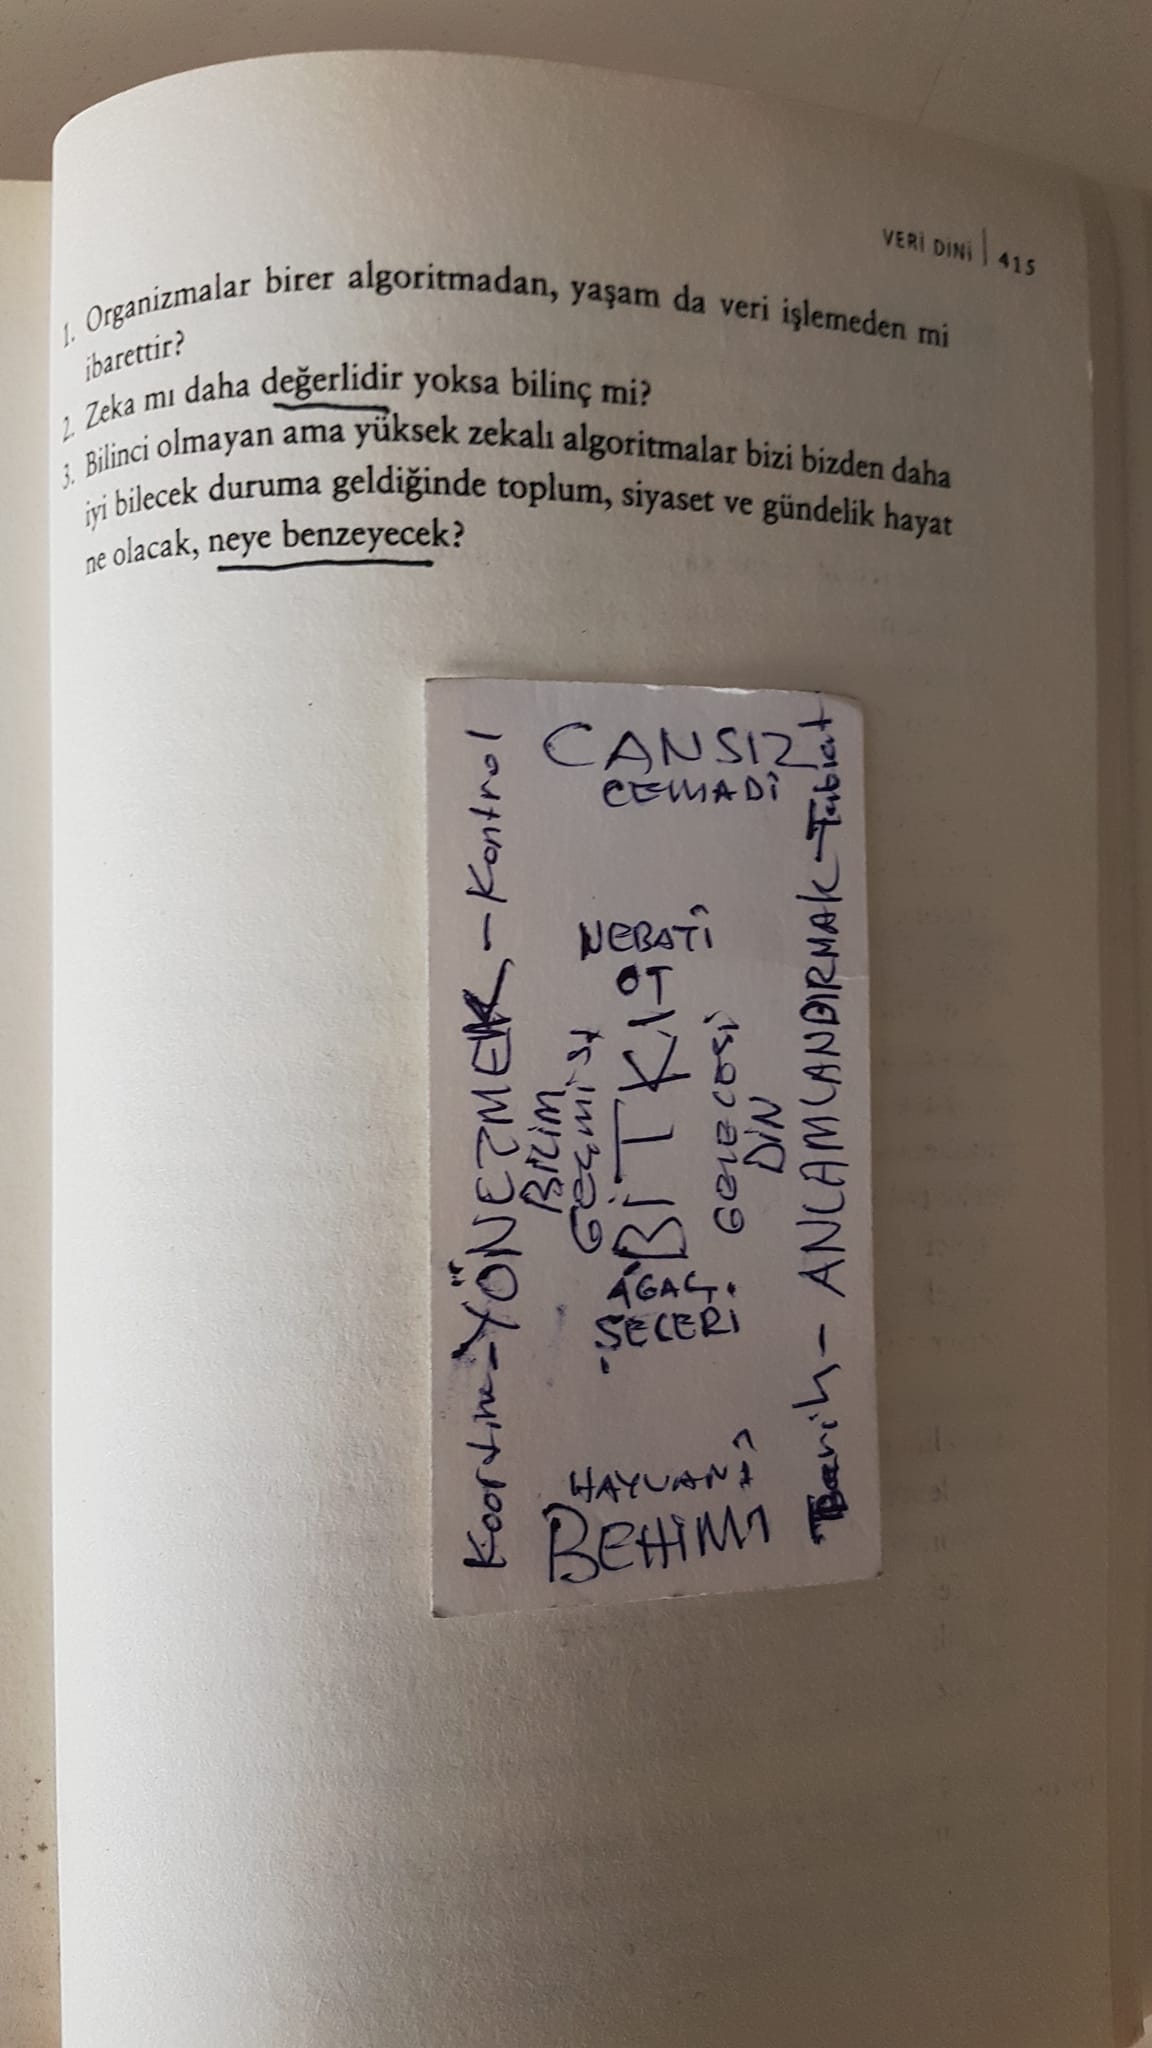 VERİ DİNİ | 415
1. Organizmalar birer algoritmadan, yaşam da veri işlemeden mi
ibarettir?
2. Zeka mı daha değerlidir yoksa bilinç mi?
3. Bilinci olmayan ama yüksek zekalı algoritmalar bizi bizden daha
iyi bilecek duruma geldiğinde toplum, siyaset ve gündelik hayat
ne olacak, neye benzeyecek?
CANSIZ
CEMADİ
NEBATİ
OT
AĞAÇ
ŞECERİ
HAYVANİ
BEHİMİ
YÖNEZMEK - Kontrol
BİLİM
GEÇMİŞİ
BİTKİ
GELECEĞİ
DİN
Tarih - ANLAMLANDIRMAK - Tabiat